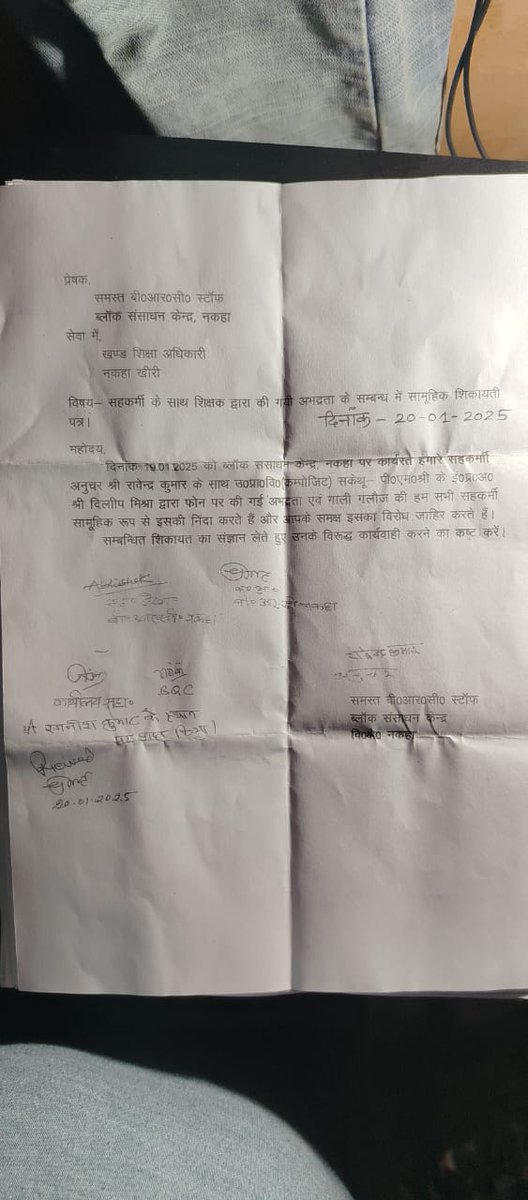 प्रेषक,
समस्त बी0आर0सी0 स्टॉफ
ब्लॉक संसाधन केन्द्र, नकहा
सेवा में,
खण्ड शिक्षा अधिकारी
नकहा खीरी
विषय– सहकर्मी के साथ शिक्षक द्वारा की गयी अभद्रता के सम्बन्ध में सामूहिक शिकायती
पत्र।
दिनाँक – 20-01-2025
महोदय,
दिनांक 19.01.2025 को ब्लॉक संसाधन केन्द्र, नकहा पर कार्यरत हमारे सहकर्मी
अनुचर श्री रावेन्द्र कुमार के साथ उ0प्रा0वि0(कम्पोजिट) सकेथू– पी0एम0श्री के इ0प्र0अ0
श्री दिलीप मिश्रा द्वारा फोन पर की गई अभद्रता एवं गाली गलौज की हम सभी सहकर्मी
सामूहिक रूप से इसकी निंदा करते हैं और आपके समक्ष इसका विरोध जाहिर करते हैं।
सम्बन्धित शिकायत का संज्ञान लेते हुए उनके विरूद्ध कार्यवाही करने का कष्ट करें।
Abhishek
नकहा
कार्यालय सहा0
समस्त बी0आर0सी0 स्टॉफ
ब्लॉक संसाधन केन्द्र
नकहा
Received
20-01-2025